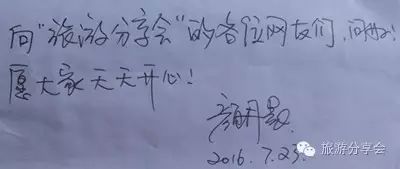 向“旅游分享会”的各位网友们,问好!
愿大家天天开心!
颜丹晨
2016.7.23.
旅游分享会